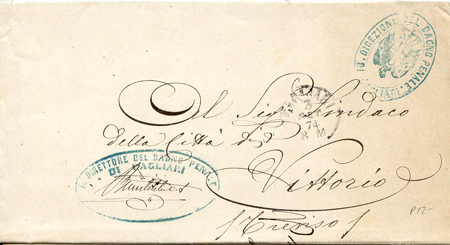 DIREZIONE DEL BAGNO PENALE
CAGLIARI
3
SET
74
8 M
Al Sig. Sindaco
della Città di
Vittorio
(Treviso)
IL DIRETTORE DEL BAGNO PENALE
DI CAGLIARI
P12-